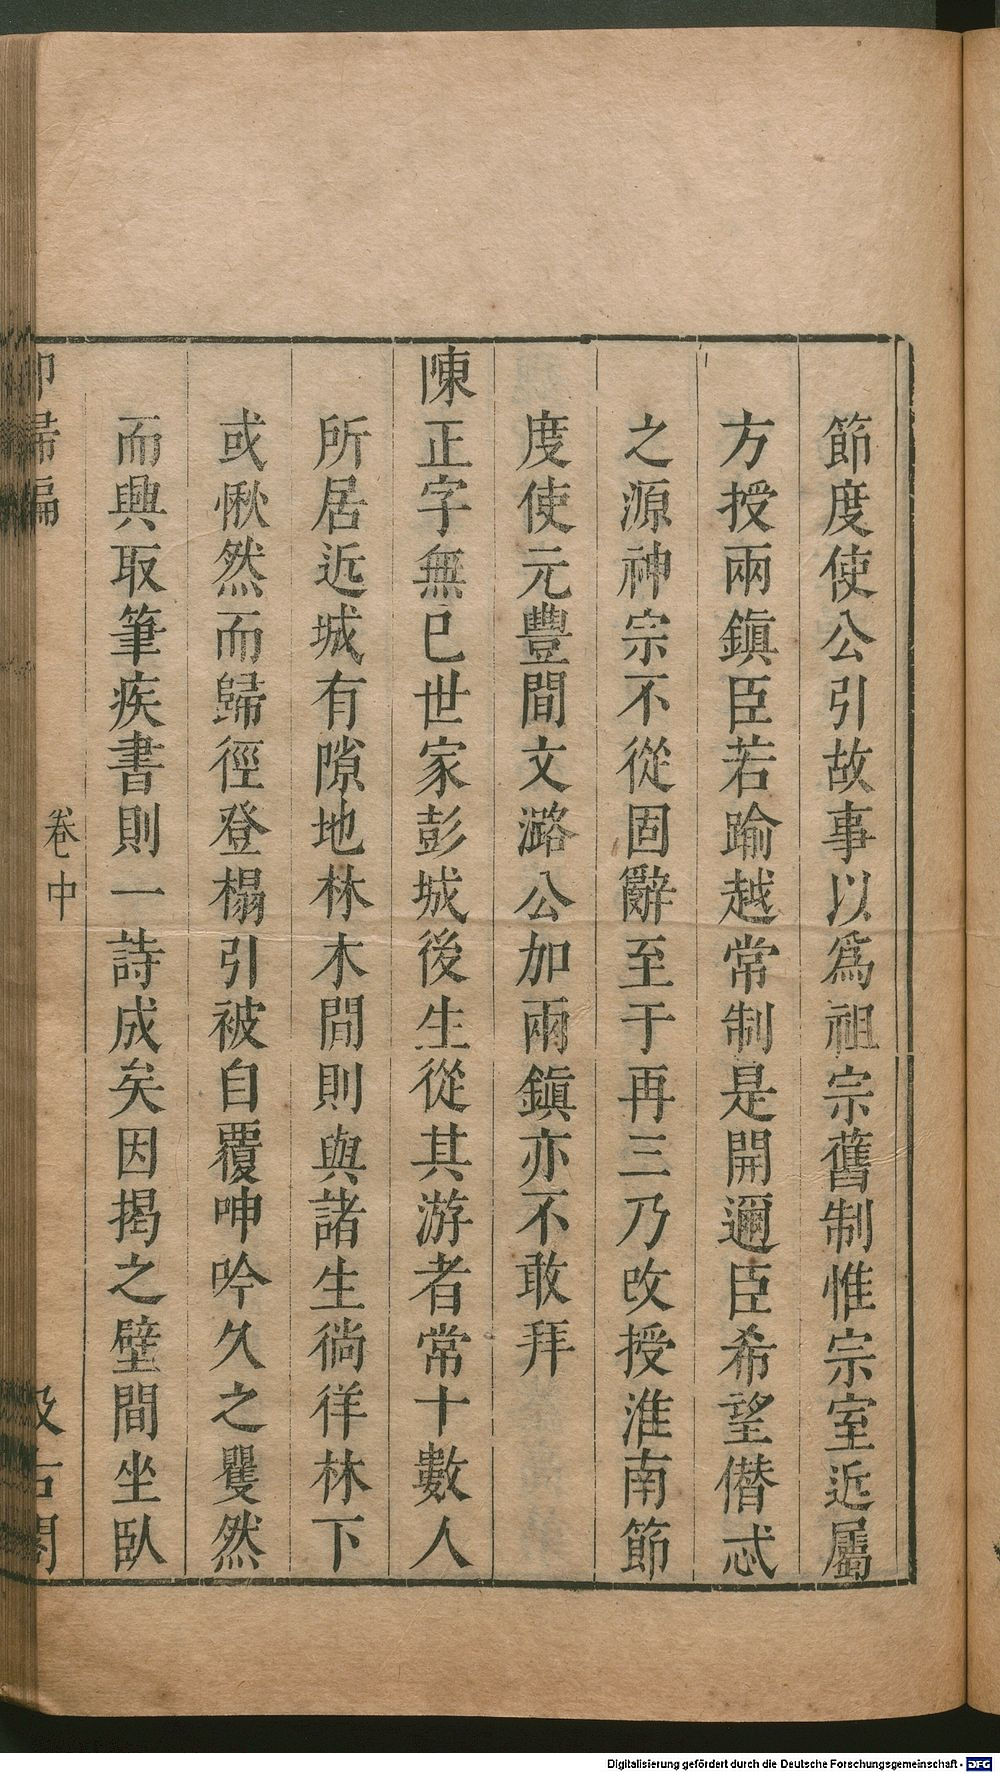 節度使公引故事以爲祖宗舊制惟宗室近屬
方授兩鎭臣若踰越常制是開邇臣希望僭忒
之源神宗不從固辭至于再三乃改授淮南節
度使元豐間文潞公加兩鎭亦不敢拜
陳正字無已世家彭城後生從其游者常十數人
所居近城有隙地林木間則與諸生徜徉林下
或愀然而歸徑登榻引被自覆呻吟久之矍然
而興取筆疾書則一詩成矣因揭之壁間坐臥
卻掃編
卷中
汲古閣
Digitalisierung gefördert durch die Deutsche Forschungsgemeinschaft - DFG